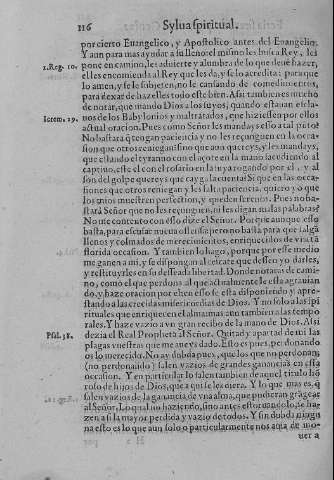 116 Sylua spiritual.
por cierto Euangelico, y Apostolico antes del Euangelio.
Y aun para mas ayudar a su llenarel mismo les busca Rey, les
1. Reg. 10. pone en camino, les aduierte y alumbra de lo que deue hazer,
el les encomienda al Rey que les da, y se lo acredita: para que
lo amen, y se le subjeten, no le cansando de comedimientos,
para dexar de hazelles todo este bien. Assi tambien es mucho
de notar, que mando Dios a los suyos, quando estauan escla-
Ierem. 29. nos de los Babylonios y maltratados, que hiziessen por ellos
actual oracion. Pues como Señor les mandays esso a tal punto?
No basta que tengan paciencia y no les renieguen en la oca-
sion que otros renegarian si no que aun quereys, y les mandays,
que estando el tyranno con el açote en la mano sacudiendo al
captiuo, este el con el coraçon en la tuya rogando por el, y al
son del golpe quereys que caygala lengua? Si que en las occa-
siones que otros reniegan y les falta paciencia, quiero yo que
los mios muestren perfection, y queden serenos. Pues no bas-
tará Señor que no les renieguen, ni les digan malas palabras?
No me contento con esso dize el Señor. Porque aunque esso
basta, para escusar nueua offensa: pero no basta para que salgã
llenos y colmados de merecimientos, enriquecidos de virtud
florida occasion. Y tambien lo hago, porque por esse medio
me ganen a mi, y se dispongan al rescate que desseo yo darles,
y restituyrles en su desseada libertad. Donde notaras de cami-
no, como el que perdona al que actualmente le esta agrauian-
do, y haze oracion por el, en esso se esta disponiendo y apro-
stando a las crecidas misericordias de Dios. Y no solo a las spi
rituales que enriquecen el alma: mas aun tambien a las tempo
rales. Y haze vazio a vn gran recibo de la mano de Dios. Assi
Psal. 38. dezia el Real Propheta al Señor. Quitad y apartad de mi las
plagas vuestras que me aueys dado. Esto es pues, perdonando
os lo merecido. No ay dubda pues, que los que no perdonan,
(no perdonando) salen vazios de grandes ganancias en esta
occasion. Y en particular lo salen tambien de aquel titulo hõ
roso de hijos de Dios, que a qui se les diera. Y lo que mas es, q̃
salen vazios de la ganancia de vna alma, que pudieran grãgear
al Señor. Lo qual no haziendo, sino antes estoruandolo, se ha-
zen a si la mayor perdida y vazio de todos. Y sin dubda ningu
na esto es lo que aun solo o particularmente nos auia de mo-
uer a